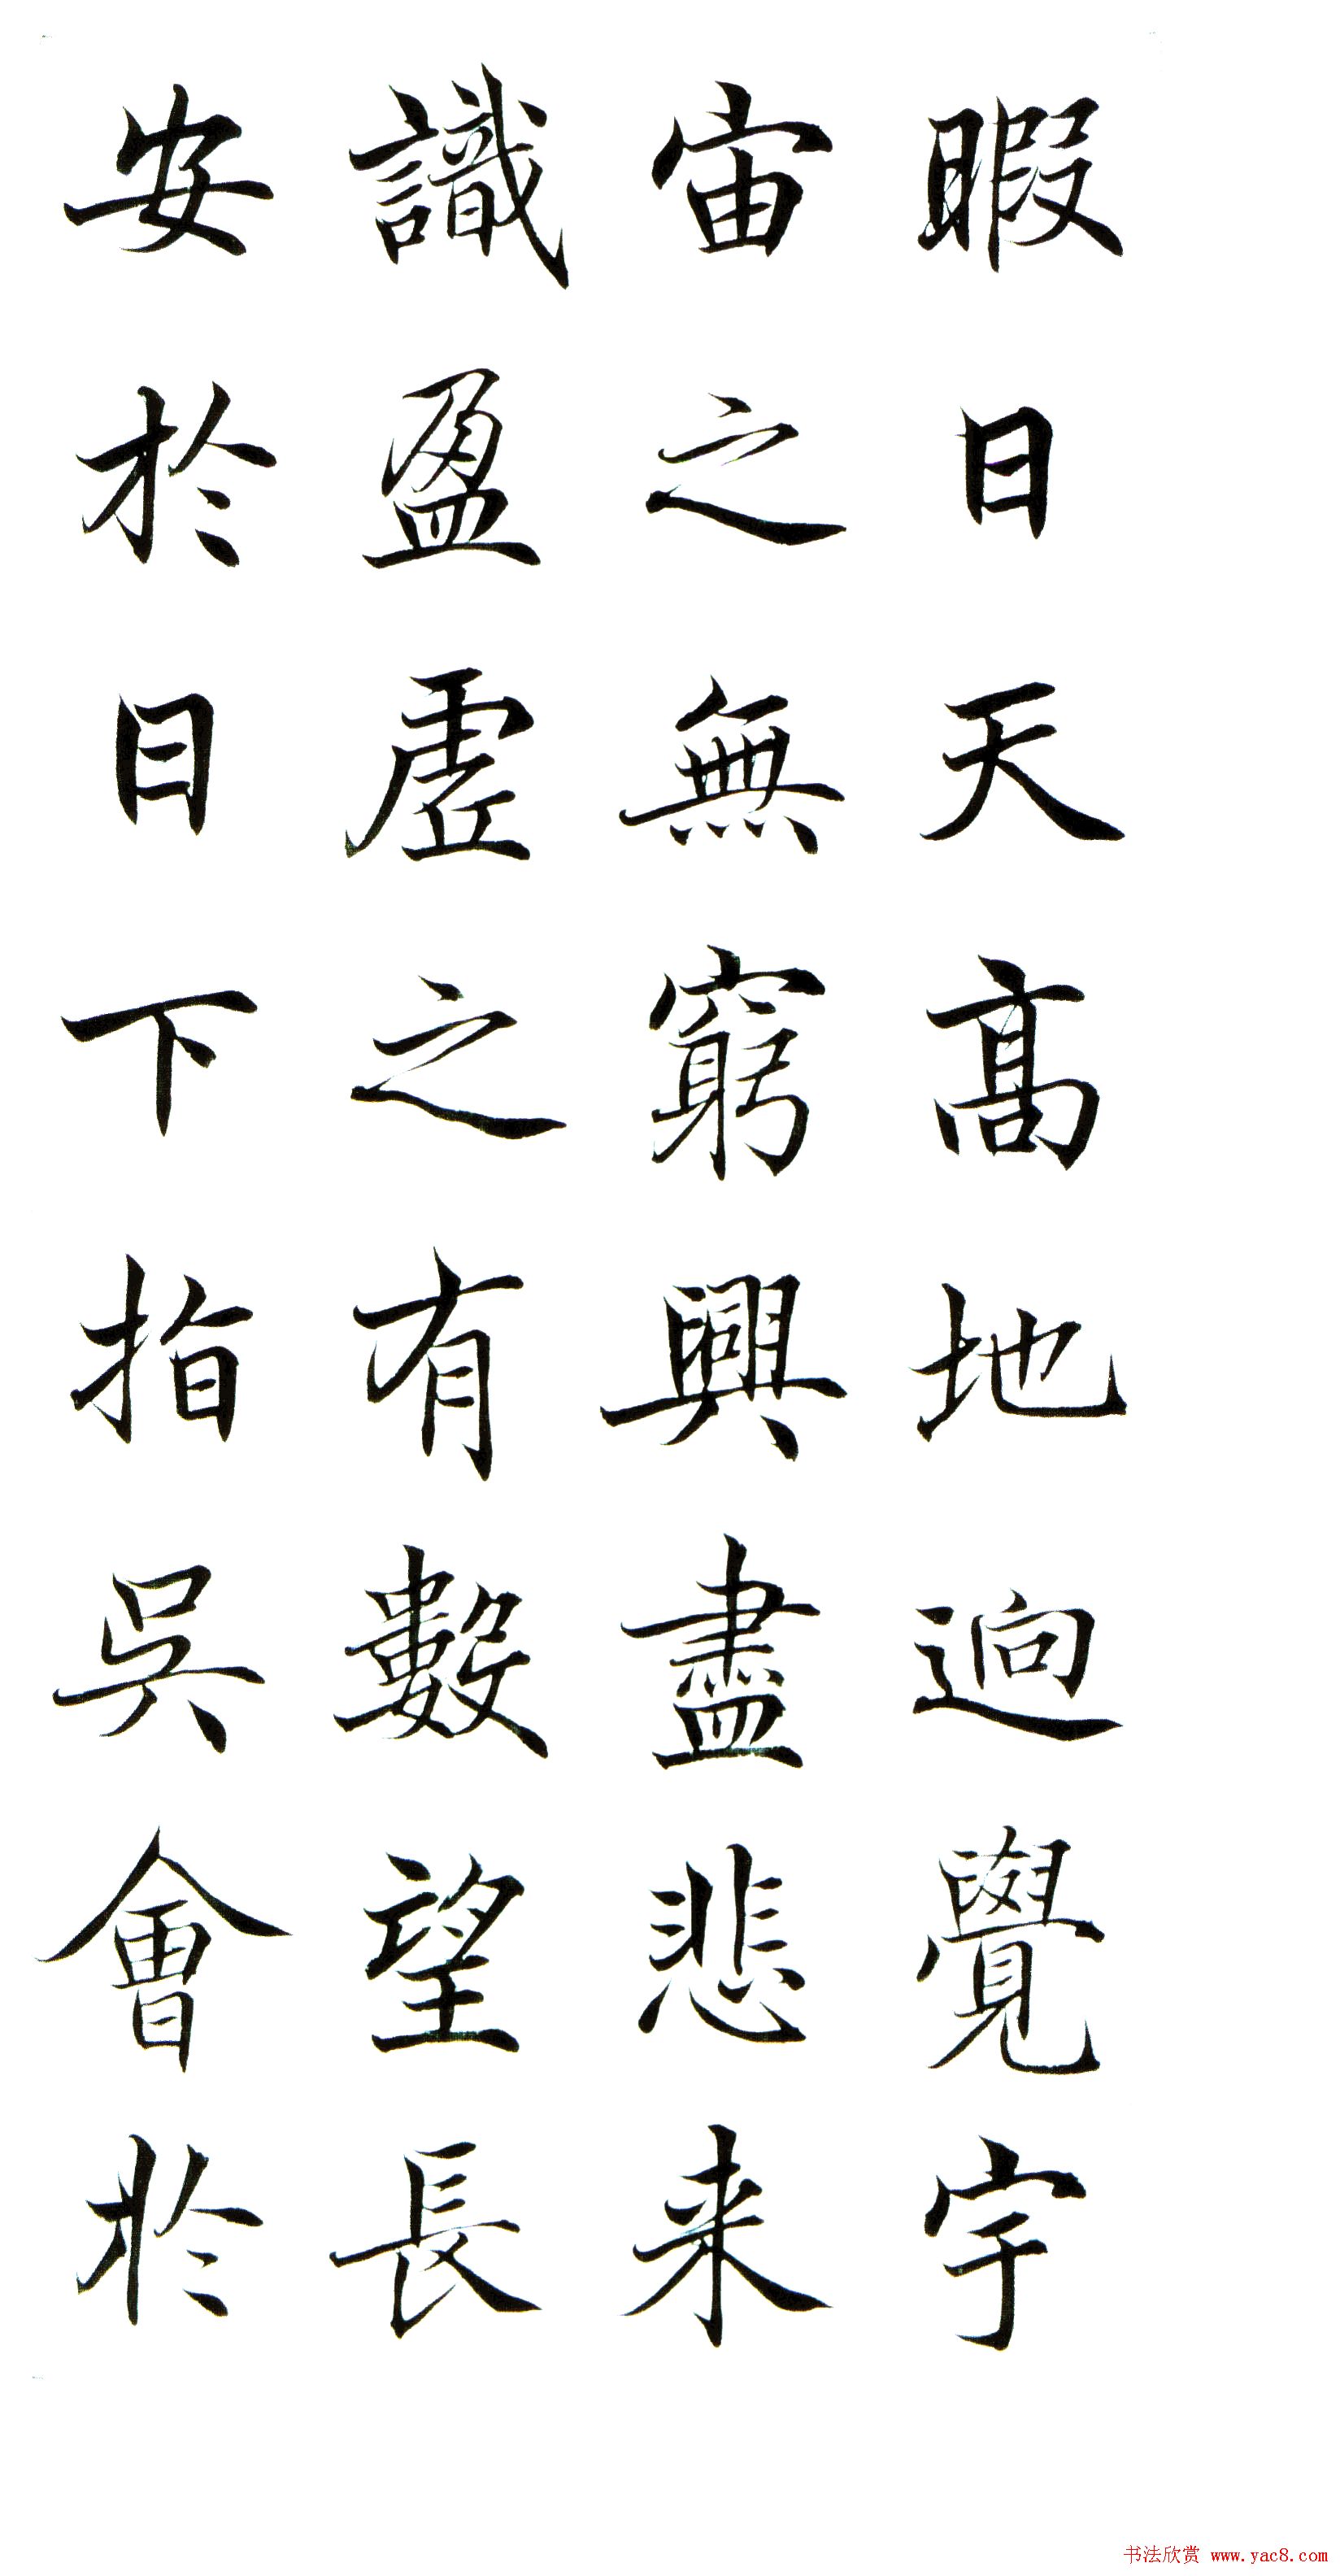 暇日天高地迥覺宇
宙之無窮興盡悲来
識盈虛之有數望長
安於日下指吳會於
书法欣赏 www.yac8.com